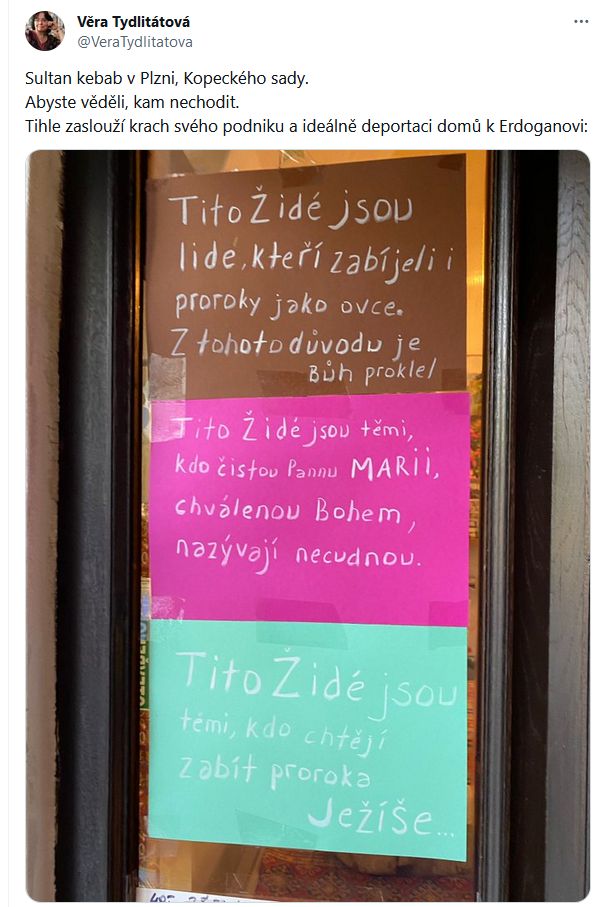 Věra Tydlitátová
@VeraTydlitatova
Sultan kebab v Plzni, Kopeckého sady.
Abyste věděli, kam nechodit.
Tihle zaslouží krach svého podniku a ideálně deportaci domů k Erdoganovi:
Tito Židé jsou
lide, kteří zabíjeli i
proroky jako ovce.
Z tohoto důvodu je
Bůh proklel
Tito Židé jsou těmi,
kdo čistou Pannu MARii,
chválenou Bohem,
nazývají necudnou.
Tito Židé jsou
těmi, kdo chtějí
zabít proroka
Ježíše...